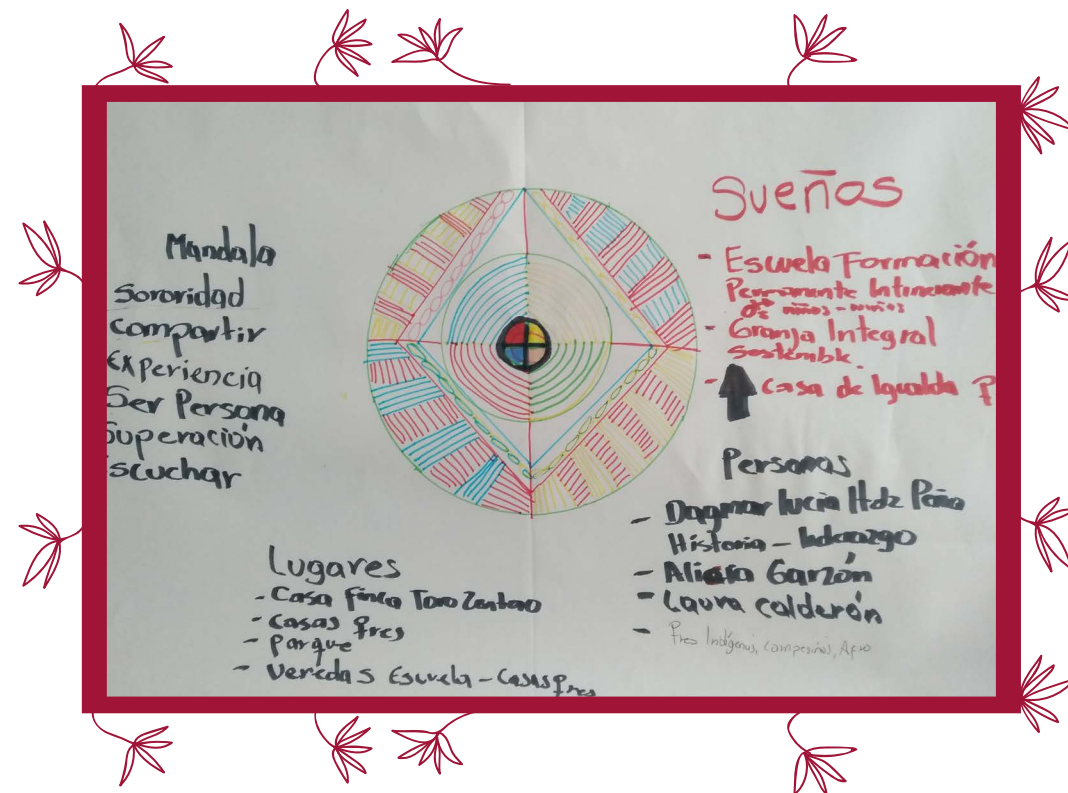 Mandala
Sororidad
compartir
Experiencia
Ser Persona
Superación
scuchar
Sueños
- Escuela Formación
Permanente Intinerante
niños - niños
- Granja Integral
sostenible
- casa de Igualda
Personas
- Dagmar lucia Hdz Peña
Historia - liderazgo
- Alicia Garzón
- Laura Calderón
- Indígenas, campesinas, Afro
Lugares
- Casa finca Toro
- Casas
- Parque
- Veredas Escuela - Casas